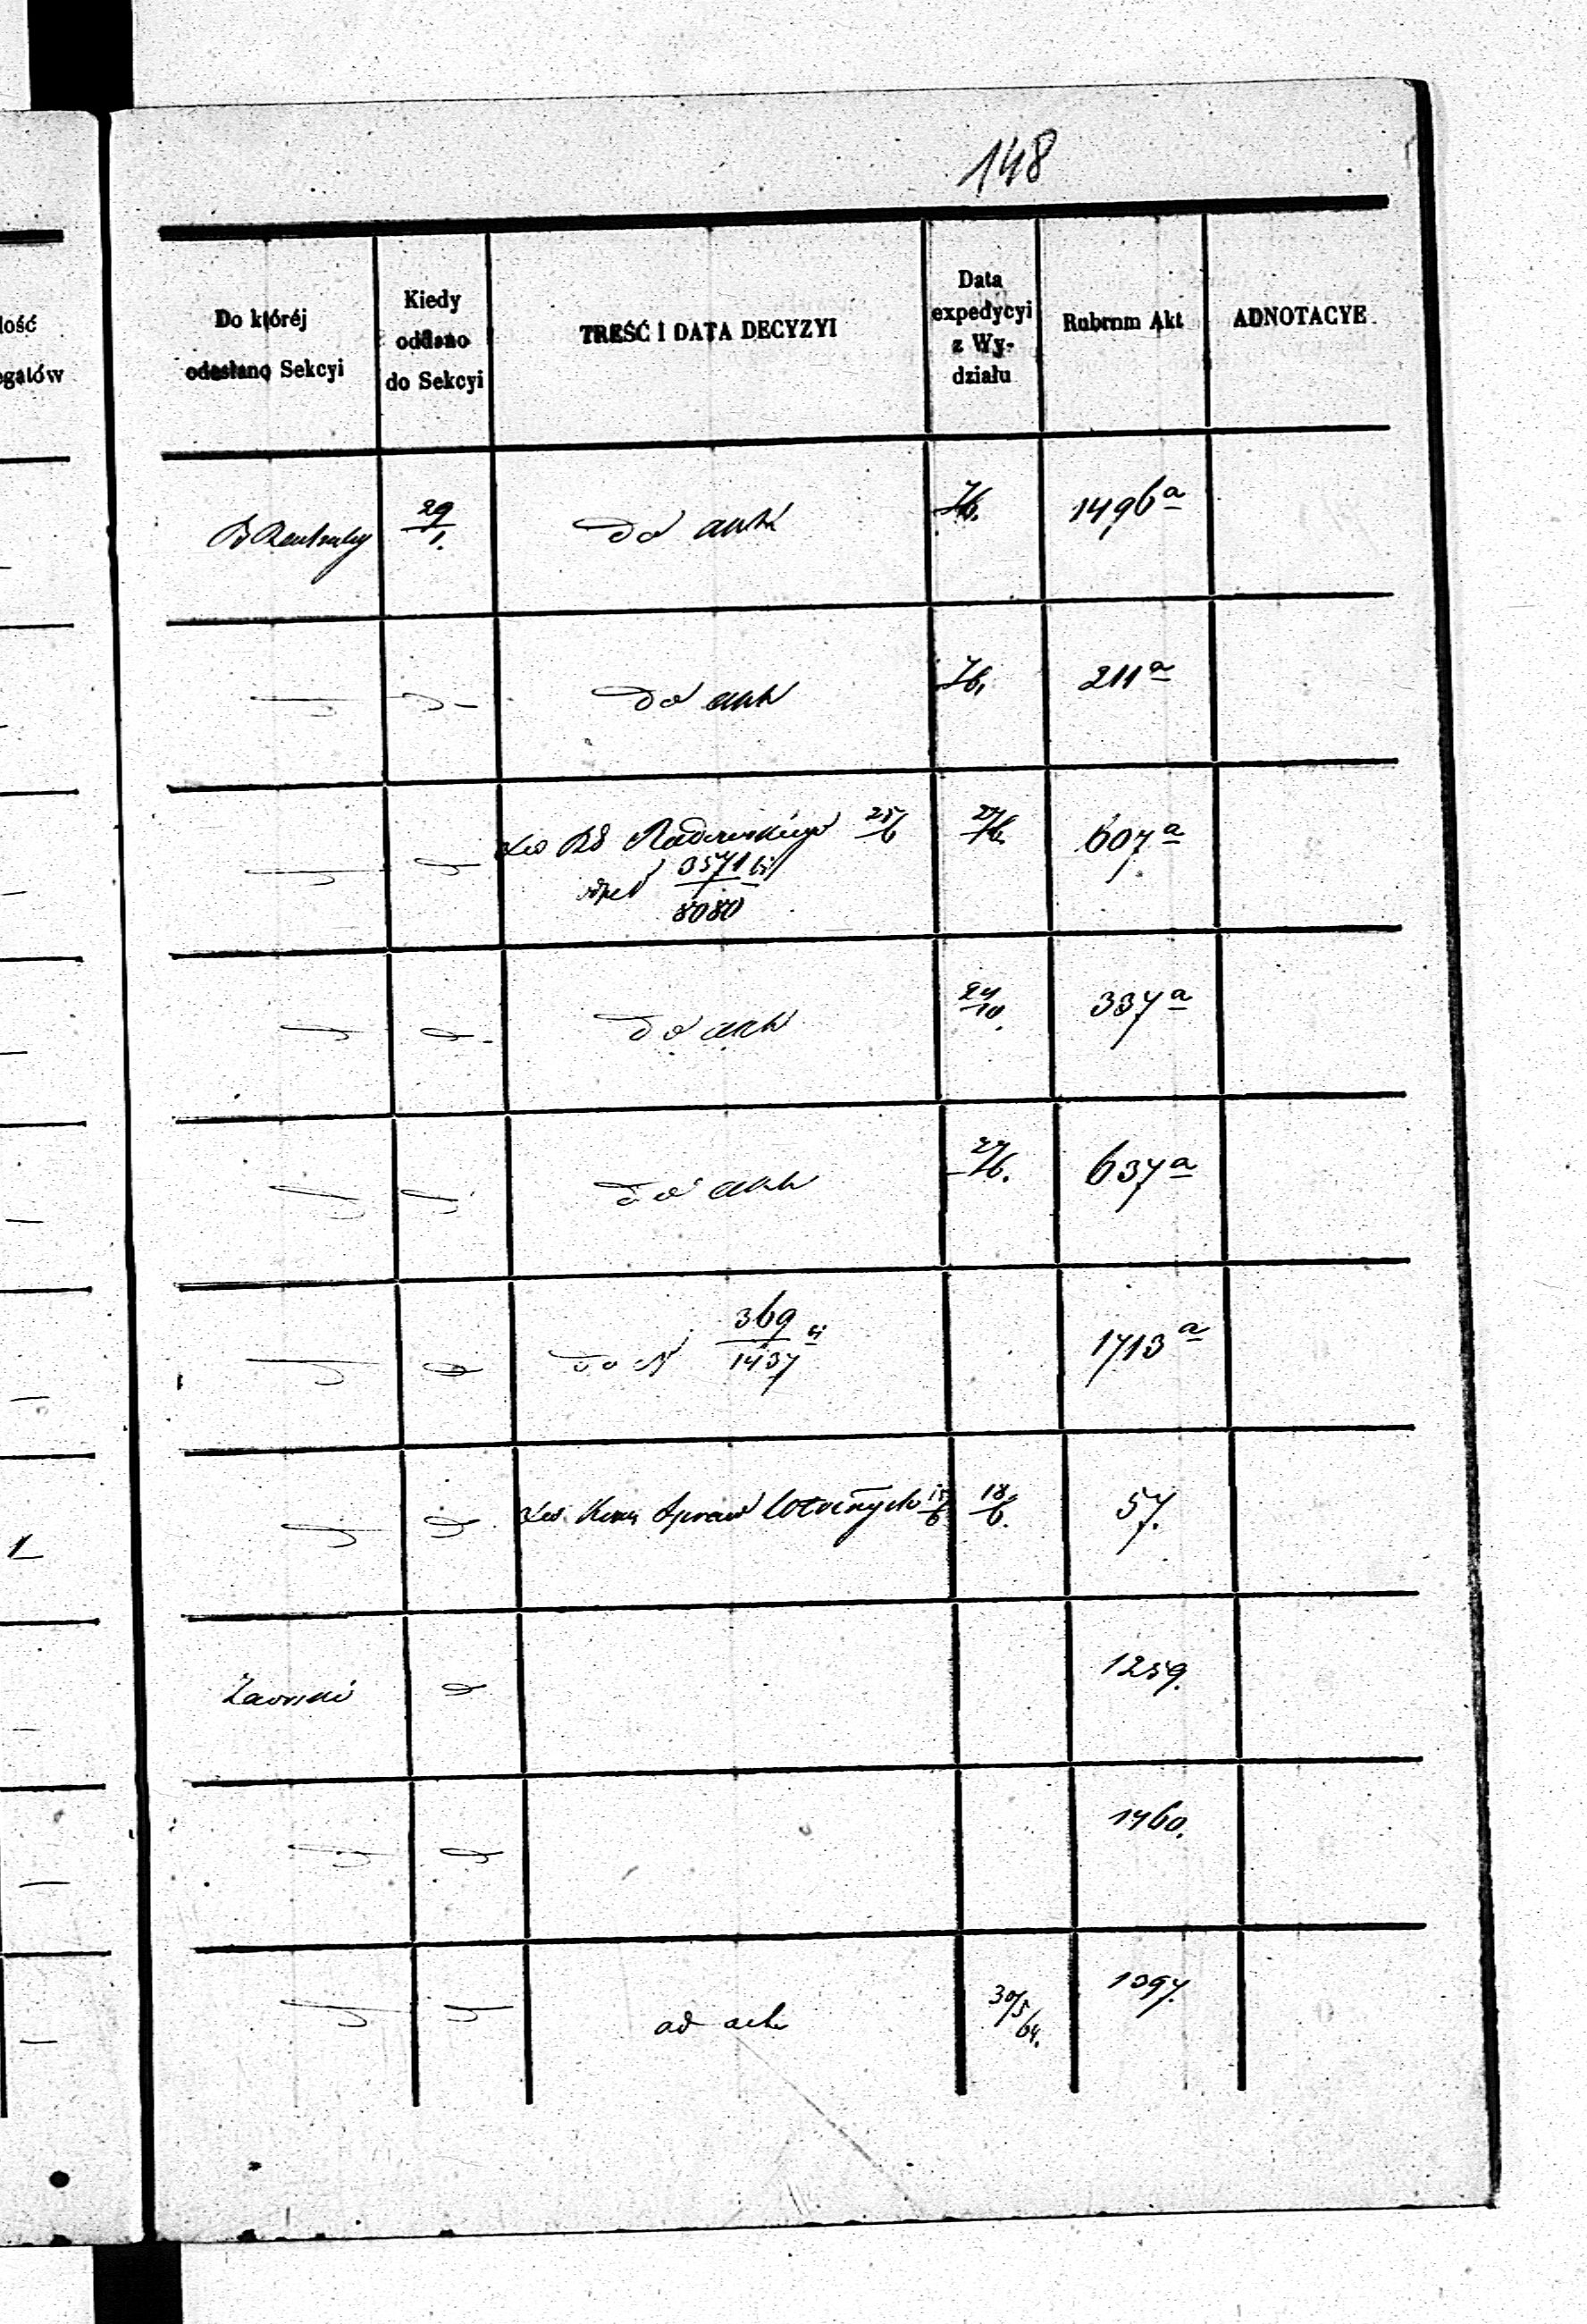 148
lość
egatów
Do któréj
odesłano Sekcyi
Kiedy
oddano
do Sekcyi
TREŚĆ I DATA DECYZYI
Data
expedycyi
z Wy-
działu
Rubrum Akt
ADNOTACYE
29/1. do akt 7/6. 1496 a
do akt 7/6. 211 a
do RG Radomskiego 25/6 27/6. 607 a
3571
8080
do akt 24/10. 337 a
do akt 27/6. 637 a
do N 369/1437 1713 a
do Spraw 15/6 18/6. 57.
1
1259.
1460.
ad acta 30/5/64. 1397.